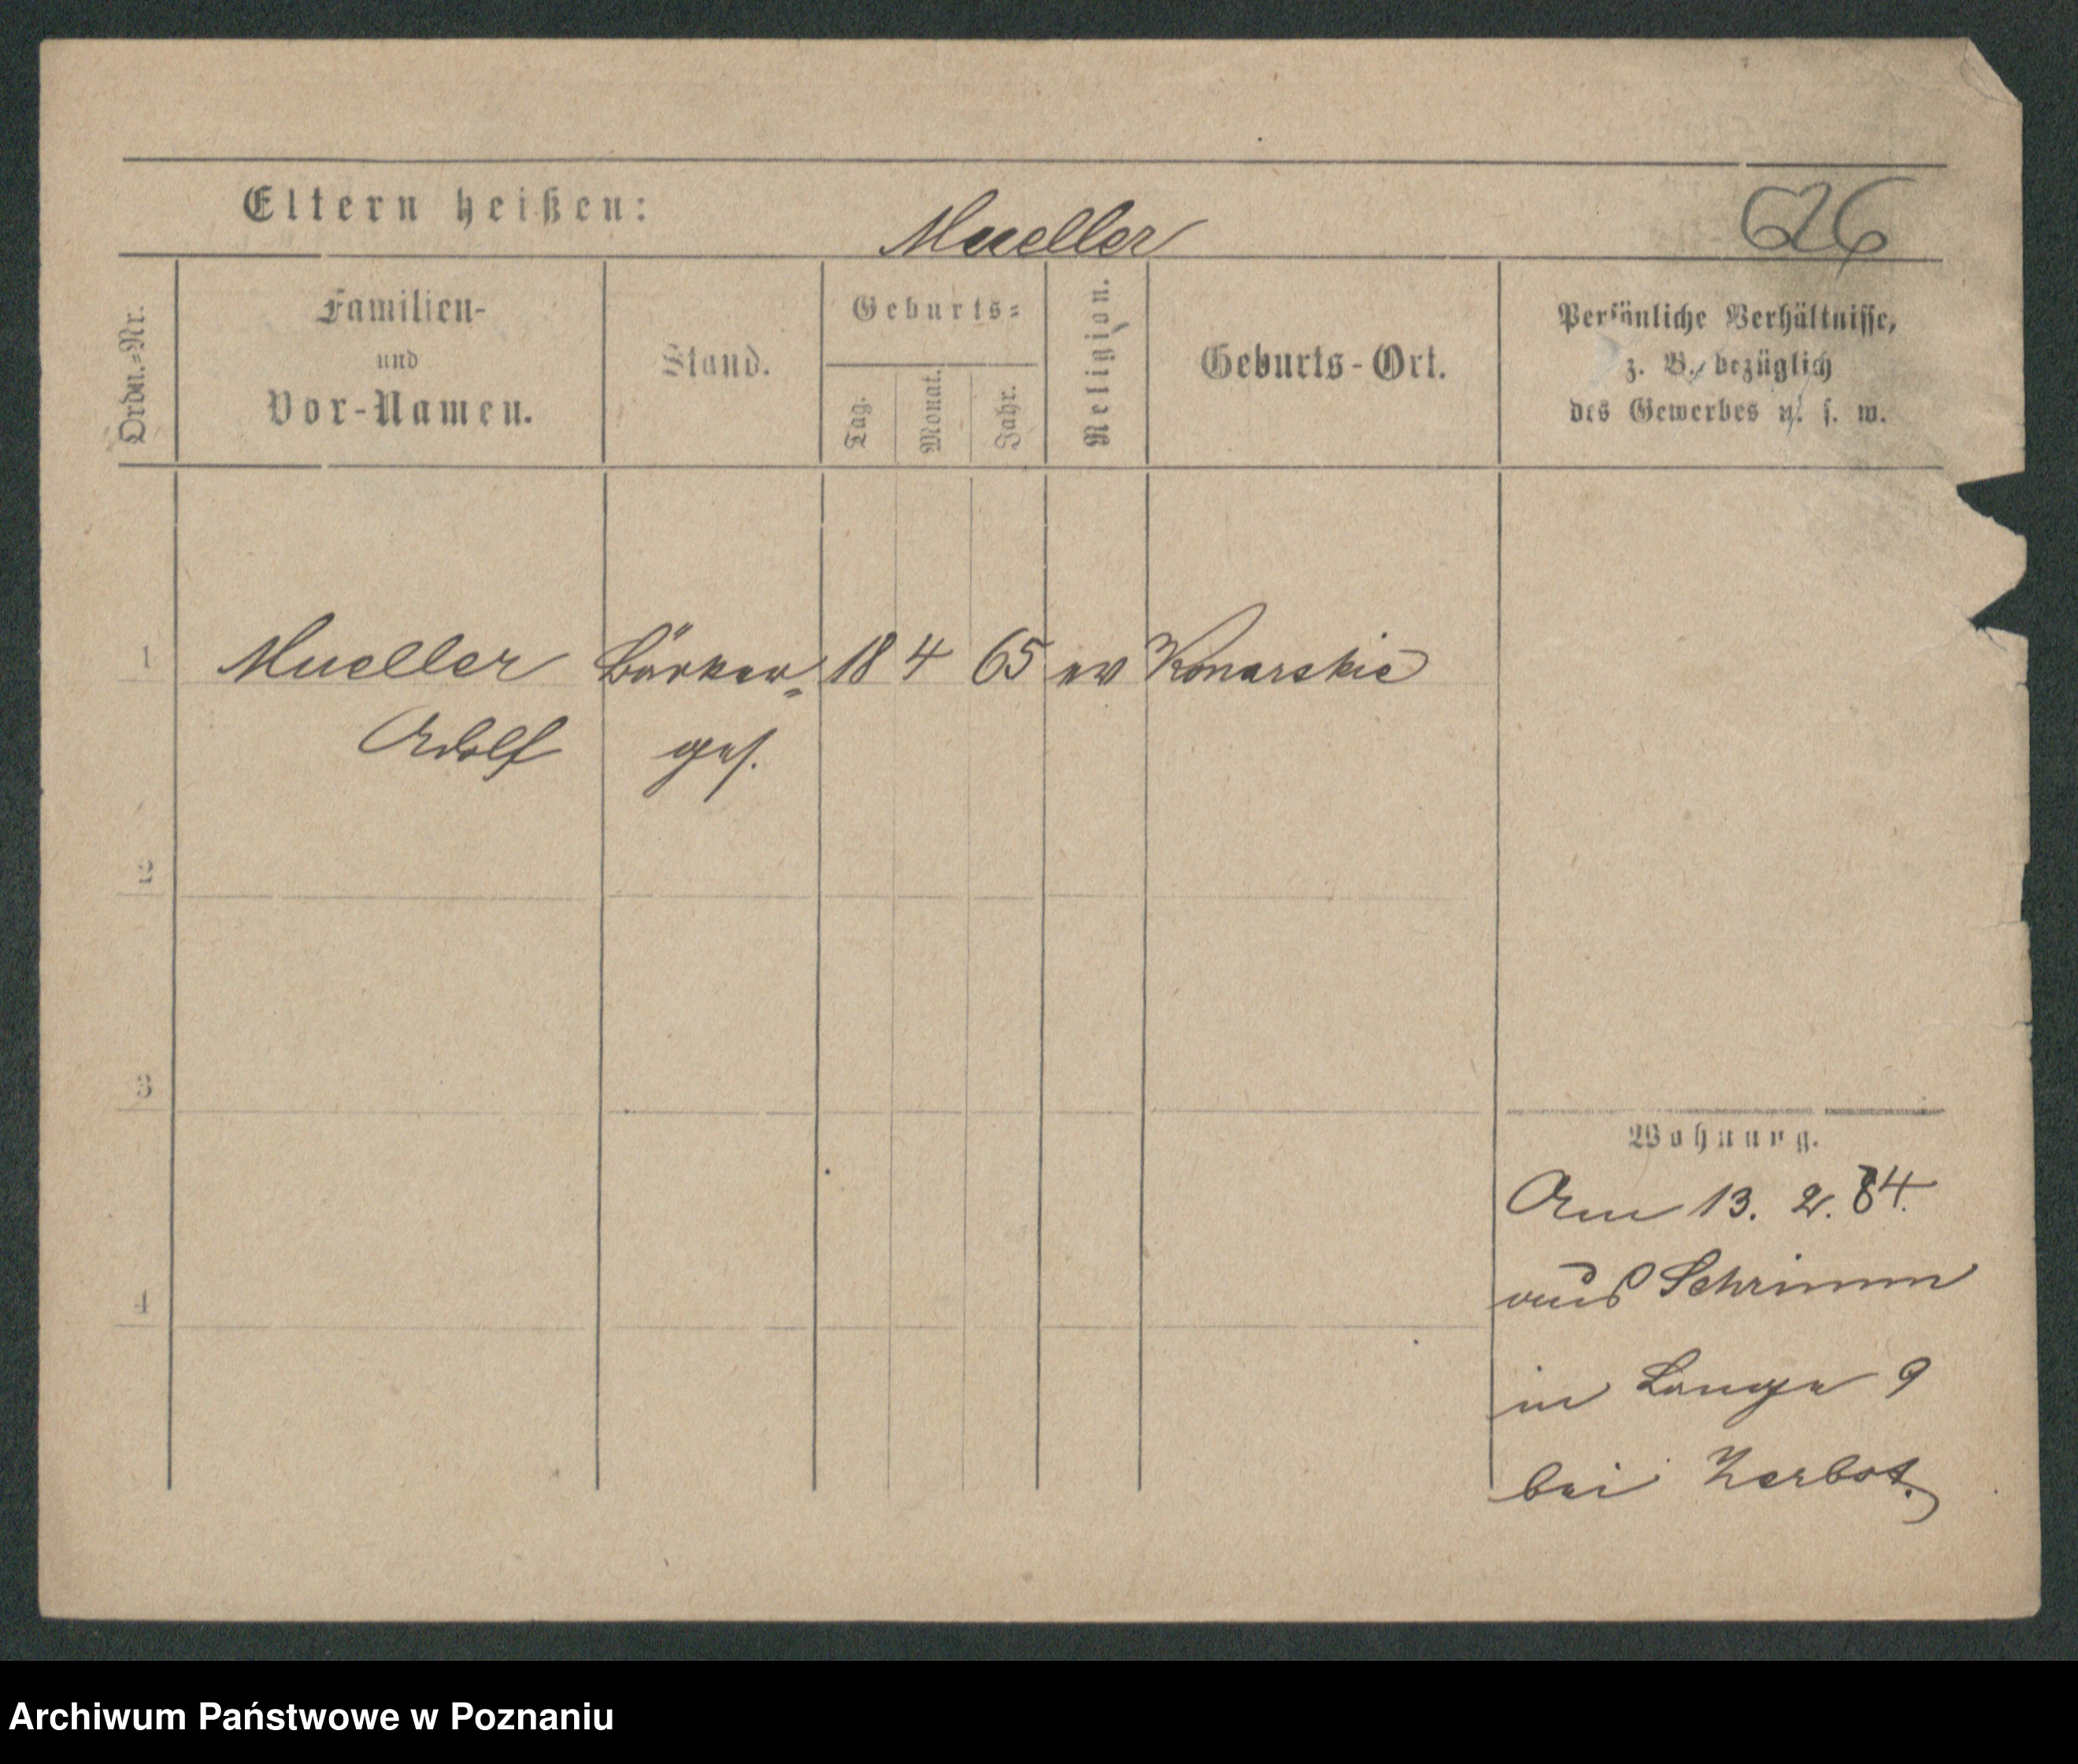 Eltern heißen: Mueller 626
Ordn.-Nr.
Familien-
und
Vor-Namen.
Stand.
Geburts-
Tag. Monat. Jahr.
Religion.
Geburts-Ort.
Persönliche Verhältnisse,
z. B. bezüglich
des Gewerbes u. s. w.
1 Mueller Bäcker- 18 4 65 ev Konarskie
Adolf ges.
2
3
4
Wohnung.
Am 13. 2. 84.
aus Schrimm
in Lange 9
bei Zerbot.
Archiwum Państwowe w Poznaniu